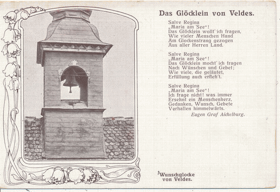 Das Glöcklein von Veldes.
Salve Regina
„Maria am See“!
Das Glöcklein wollt' ich fragen,
Wie vieler Menschen Hand
Am Glockenstrang gezogen
Aus aller Herren Land.
Salve Regina
„Maria am See“!
Das Glöcklein wollt' ich fragen
Nach Wünschen und Gebet:
Wie viele, die geläutet,
Erfüllung auch erfleht?
Salve Regina
„Maria am See“!
Ich frage nicht! was immer
Ersehnt ein Menschenherz,
Gedanken, Wunsch, Gebete
Verhallen himmelwärts.
Eugen Graf Aichelburg.
Wunschglocke
von Veldes.